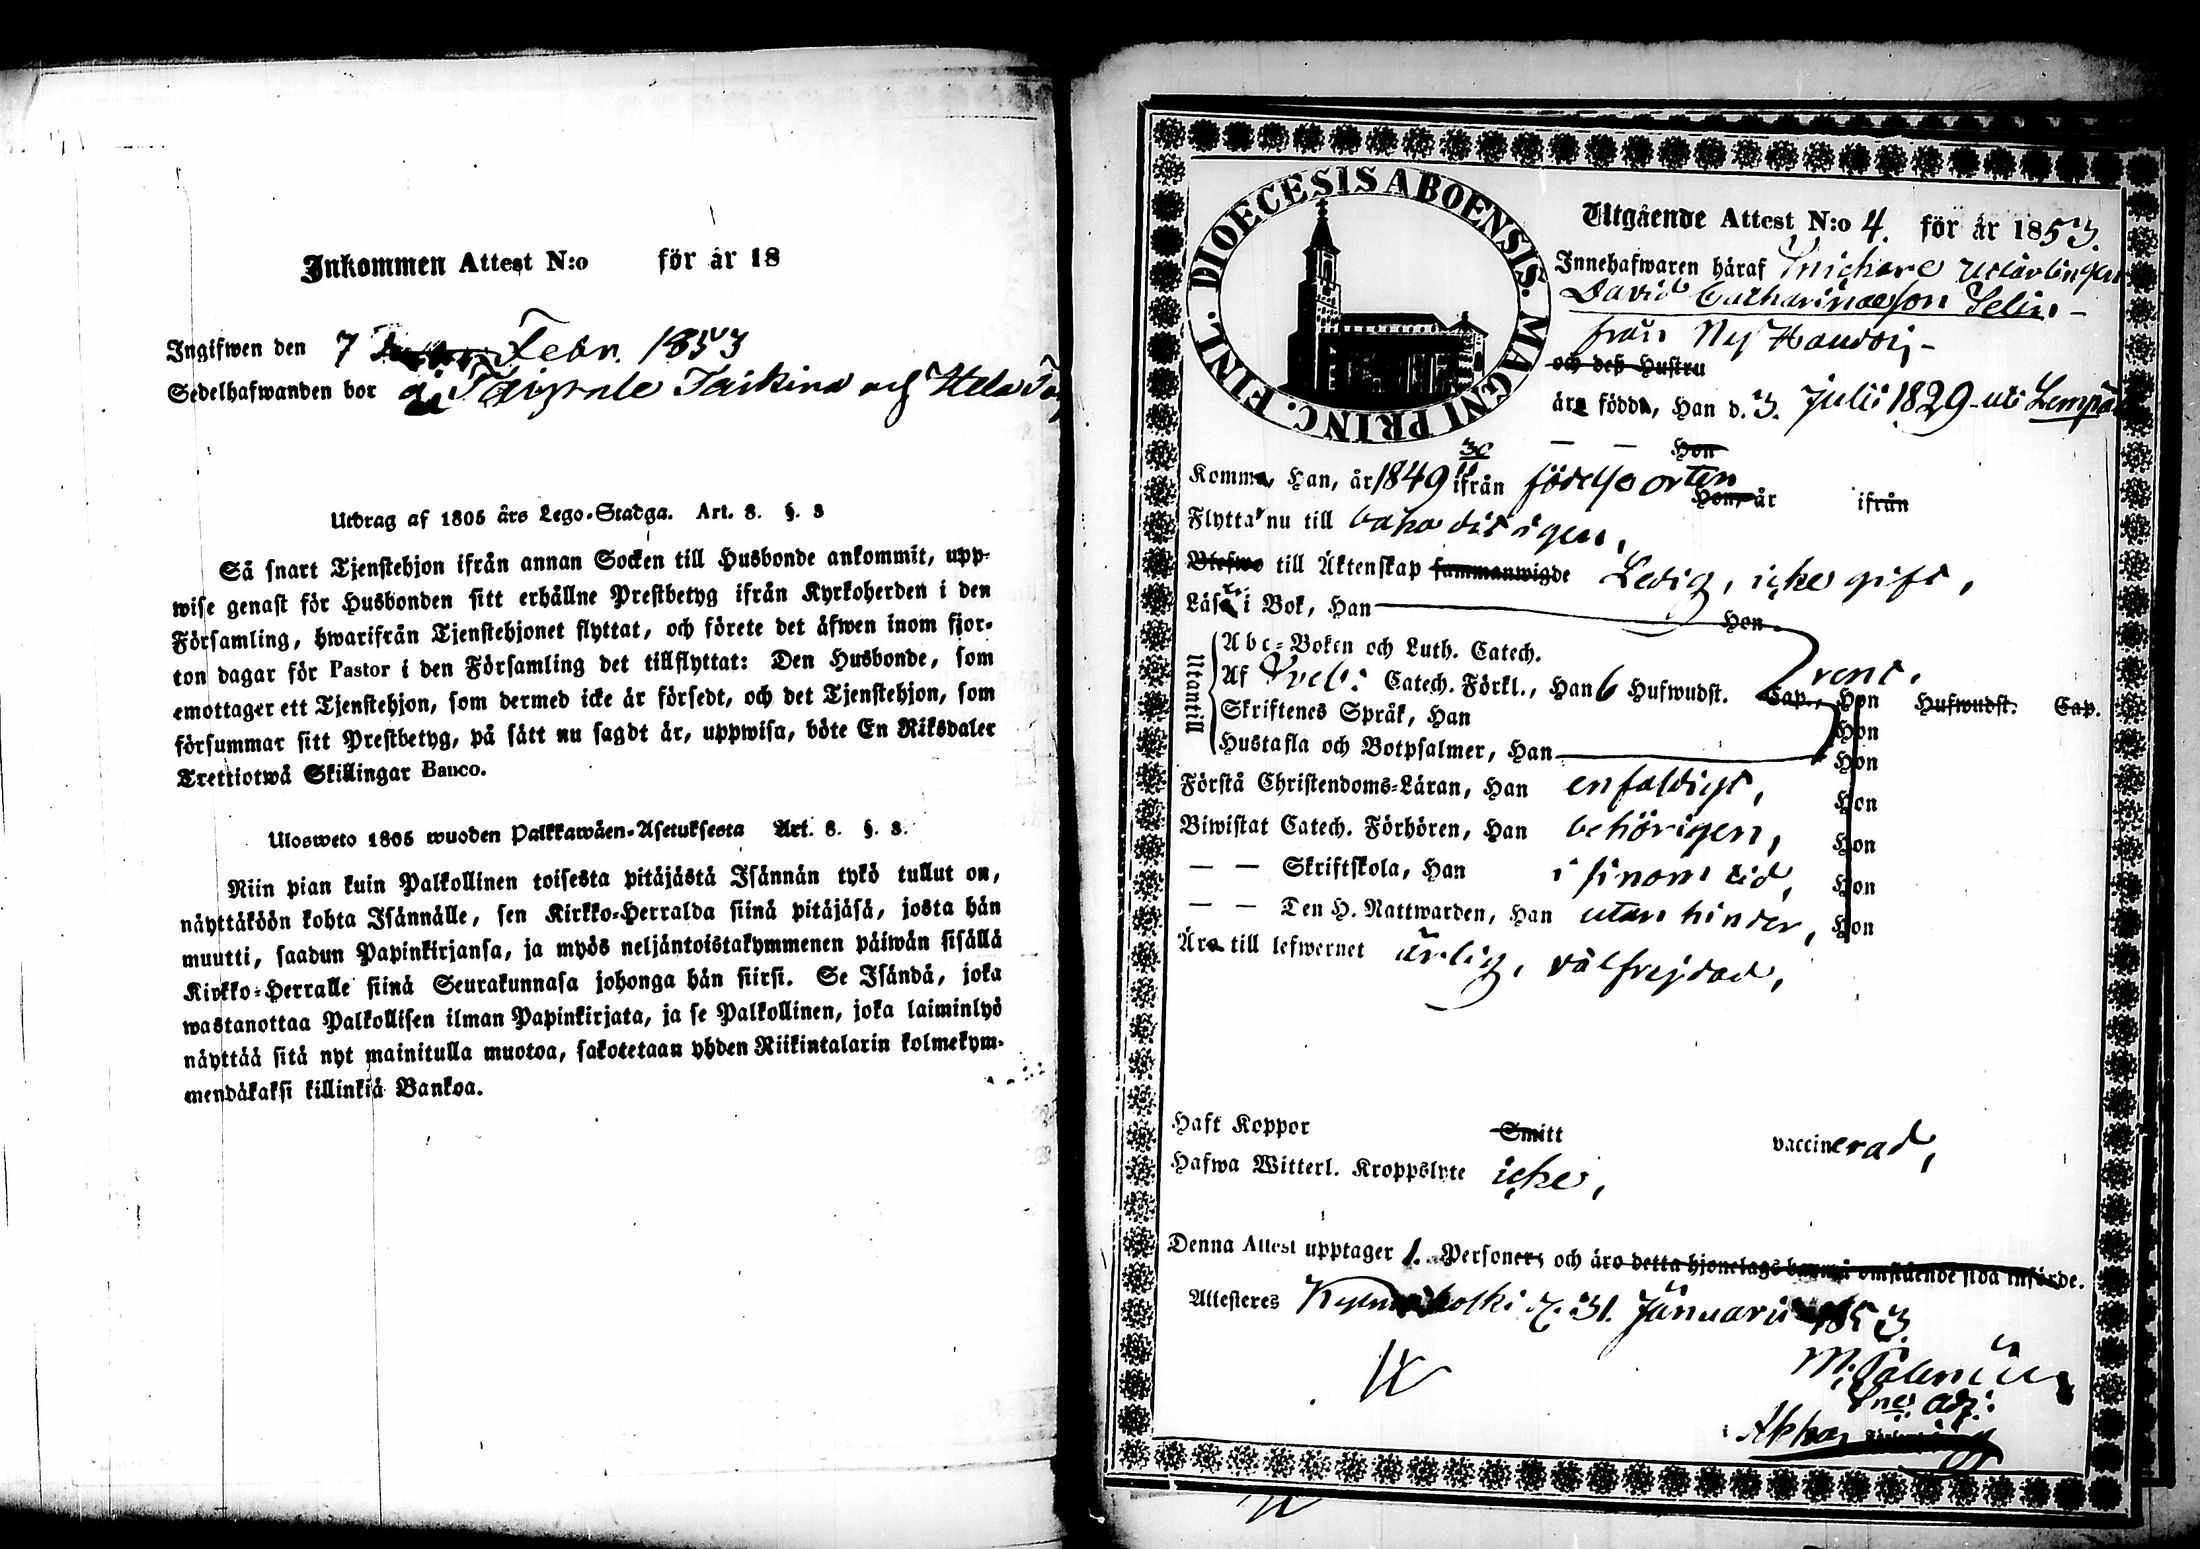 Inkommen Attest N:o för år 18
Ingifwen den 7 Febr. 1853
Sedelhafwanden bor å
Utdrag af 1805 års Lego-Stadga. Art. 8. §. 3
Så snart Tjenstehjon ifrån annan Socken till Husbonde ankommit, upp-
wise genast för Husbonden sitt erhållne Prestbetyg ifrån Kyrkoherden i den
Församling, hwarifrån Tjenstehjonet flyttat, och förete det äfwen inom fjor-
ton dagar för Pastor i den Församling det tillflyttat: Den Husbonde, som
emottager ett Tjenstehjon, som dermed icke är försedt, och det Tjenstehjon, som
försummar sitt Prestbetyg, på sätt nu sagdt är, uppwisa, böte En Riksdaler
Trettiotwå Skillingar Banco.
Uloswеto 1805 wuoden Palkkawäen-Asetuksesta Art. 8. §. 3.
Niin pian kuin Palkollinen toisesta pitäjästä Isännän tykö tullut on,
näyttäköön kohta Isännälle, sen Kirkko-Herralda siinä pitäjäsä, josta hän
muutti, saadun Papinkirjansa, ja myös neljäntoistakymmenen päiwän sisällä
Kirkko-Herralle siinä Seurakunnasa johonga hän siirsi. Se Isändä, joka
wastanottaa Palkollisen ilman Papinkirjata, ja se Palkollinen, joka laiminlyö
näyttää sitä nyt mainitulla muotoa, sakotetaan yhden Riikintalarin kolmekym-
mendäkaksi killinkiä Bankoa.
DIOECESIS ABOENSIS. MAGNI PRINC. FINL.
Utgående Attest N:o 4. för år 1853.
Innehafwaren häraf Snickare
David Catharinaeson Selin
från Ny
och deß Hustru
äro födda, Han d. 3. Julii 1829 uti Lempälä
— — Hon
Komma, Han, år 1849 30/11 ifrån födelseorten Hon, år ifrån
Flytta nu till
Blefwo till Äktenskap sammanwigde Ledig, icke gift,
Läsa i Bok, Han Hon
Utantill
Abc-Boken och Luth. Catech. rent,
Af Sveb: Catech. Förkl., Han 6 Hufwudst. Cap., Hon Hufwudst. Cap.
Skriftenes Språk, Han Hon
Hustafla och Botpsalmer, Han Hon
Förstå Christendoms-Läran, Han enfaldigt, Hon
Biwistat Catech. Förhören, Han behörigen, Hon
— — Skriftskola, Han i sinom tid, Hon
— — Den H. Nattwarden, Han utan hinder, Hon
Äro till lefwernet ärlig, välfrejdad,
Haft Koppor Smitt vaccinerad,
Hafwa Witterl. Kroppslyte icke,
Denna Attest upptager 1. Personer, och äro detta hjonelags barn å omstående sida införde.
Attesteres d. 31. Januarii 1853.